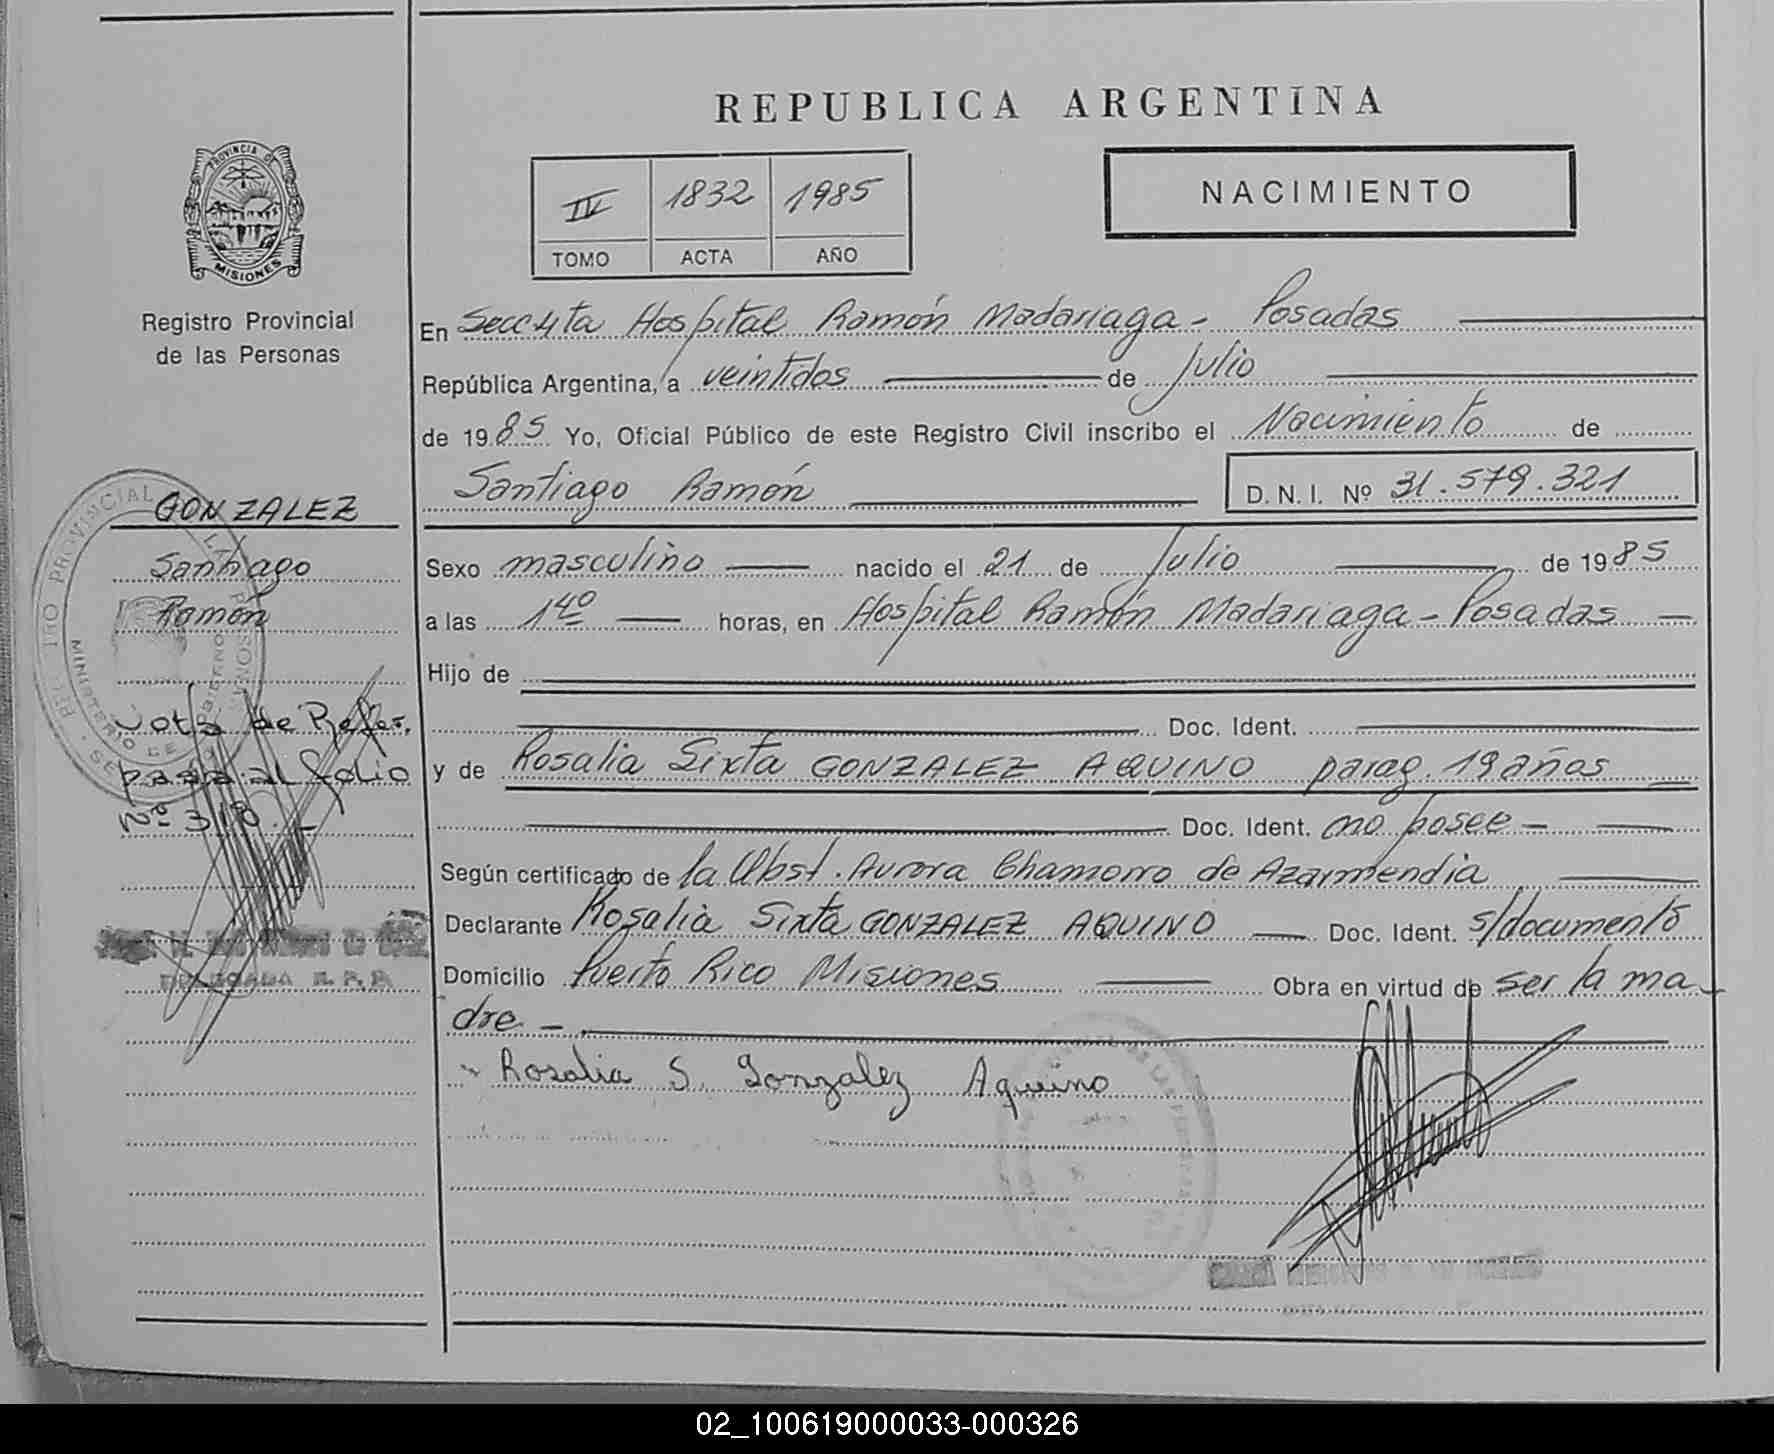 REPUBLICA ARGENTINA
PROVINCIA DE
MISIONES
Registro Provincial
de las Personas
IV 1832 1985
TOMO ACTA AÑO
NACIMIENTO
En Secc 4ta Hospital Ramón Madariaga - Posadas
República Argentina, a veintidos de Julio
de 1985 Yo, Oficial Público de este Registro Civil inscribo el Nacimiento de
Santiago Ramón D. N. I. Nº 31.579.321
GONZALEZ
Santiago
Ramón
Nota de Refer.
pasa al folio
Nº 318.-
Sexo masculino nacido el 21 de Julio de 1985
a las 14º horas, en Hospital Ramón Madariaga - Posadas -
Hijo de
Doc. Ident.
y de Rosalia Sixta GONZALEZ AQUINO parag. 19 años
Doc. Ident. no posee -
Según certificado de la Obst. Aurora Chamorro de Azarmendia
Declarante Rosalia Sixta GONZALEZ AQUINO Doc. Ident. s/documento
Domicilio Puerto Rico Misiones Obra en virtud de ser la ma-
dre -
Rosalia S. Gonzalez Aquino
02_100619000033-000326